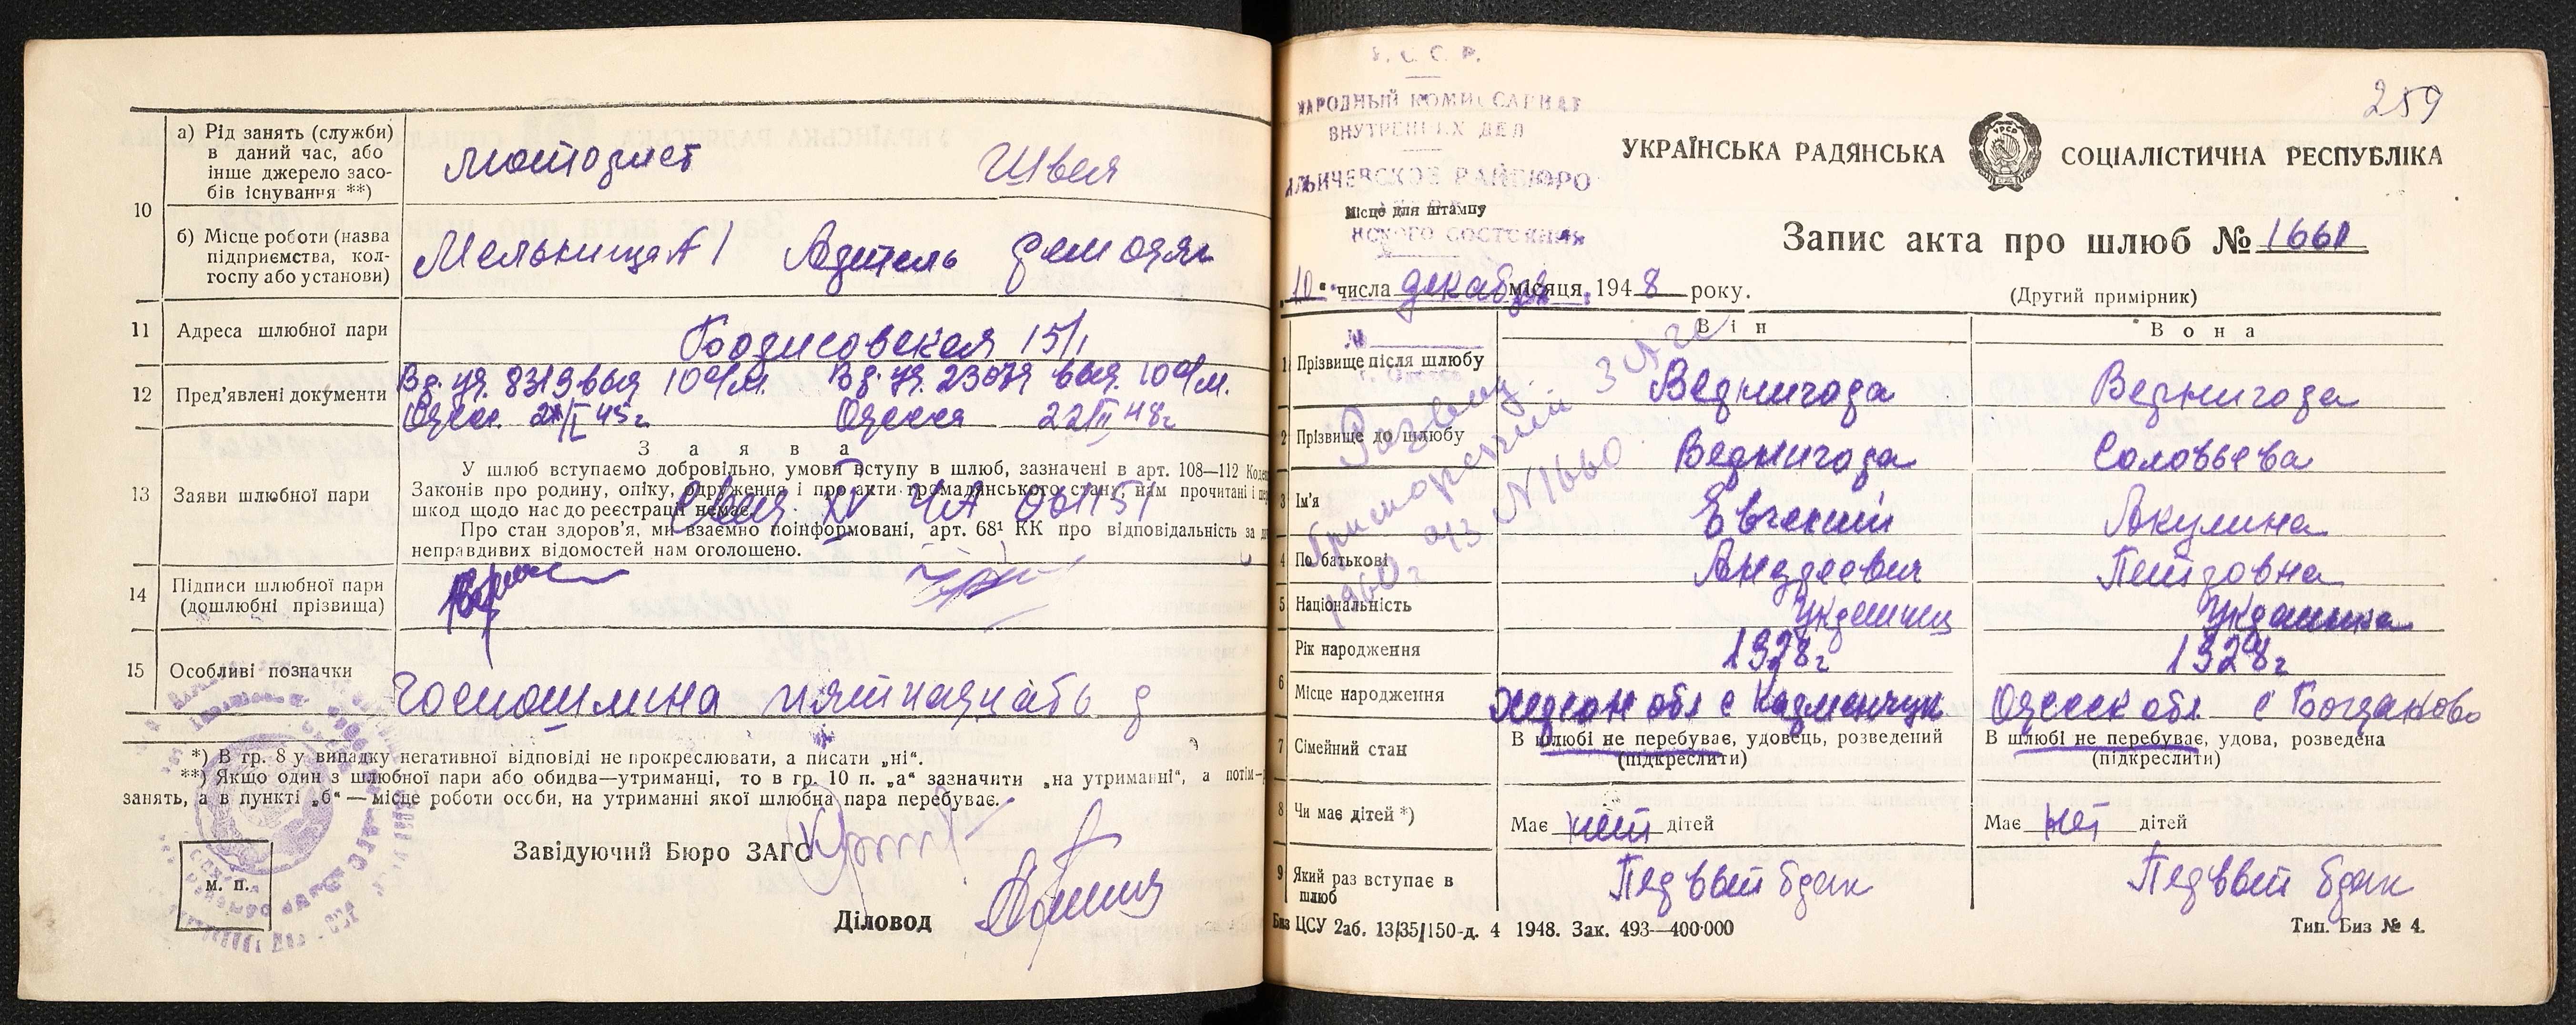 а) Рід занять (служби)
в даний час, або
інше джерело засо-
бів існування **)
мотоpист Швея
10
б) Місце роботи (назва
підприємства, кол-
госпу або установи)
Мельница №1 Артель рем одяг
11 Адреса шлюбної пари
15/1
12 Пред'явлені документи
Вр. уд. 8319 выд 10 о/м. Вр. уд. 23079 выд. 10 о/м.
Одесса 45 г Одесса 22/III 48 г
Заява
13 Заяви шлюбної пари
У шлюб вступаємо добровільно, умови вступу в шлюб, зазначені в арт. 108—112
Законів про родину, опіку, одруження і про акти громадянського стану, нам прочитані і
шкод щодо нас до реєстрації немає.
Про стан здоров'я, ми взаємно поінформовані, арт. 68¹ КК про відповідальність за
неправдивих відомостей нам оголошено.
14 Підписи шлюбної пари
(дошлюбні прізвища)
15 Особливі позначки
госпошлина пятнадцать р
*) В гр. 8 у випадку негативної відповіді не прокреслювати, а писати „ні“.
**) Якщо один з шлюбної пари або обидва—утриманці, то в гр. 10 п. „а“ зазначити „на утриманні“, а потім—
занять, а в пункті „б“ — місце роботи особи, на утриманні якої шлюбна пара перебуває.
Завідуючий Бюро ЗАГС
м. п.
Діловод
У. С. С. Р.
НАРОДНЫЙ КОМИССАРИАТ
ВНУТРЕННИХ ДЕЛ
ИЛЬИЧЕВСКОЕ РАЙБЮРО
Місце для штампу
СОСТОЯНИЯ
259
УКРАЇНСЬКА РАДЯНСЬКА СОЦІАЛІСТИЧНА РЕСПУБЛІКА
Запис акта про шлюб № 1661
„10“ числа декабря місяця 1948 року.
(Другий примірник)
Він Вона
1 Прізвище після шлюбу Веднигора Веднигора
2 Прізвище до шлюбу Веднигора Соловьева
3 Ім'я Евгений Акулина
4 По батькові Андреевич Петровна
5 Національність украинец украинка
Рік народження 1928 г 1928 г
6 Місце народження Херсон обл с Кременчук Одесск обл. с Богданово
7 Сімейний стан
В шлюбі не перебуває, удовець, розведений
(підкреслити)
В шлюбі не перебуває, удова, розведена
(підкреслити)
8 Чи має дітей *)
Має нет дітей Має нет дітей
9 Який раз вступає в
шлюб
Первый брак Первый брак
Развод
1960 г
№ 1660
Биз ЦСУ 2аб. 13/35/150-д. 4 1948. Зак. 493—400·000 Тип. Биз № 4.